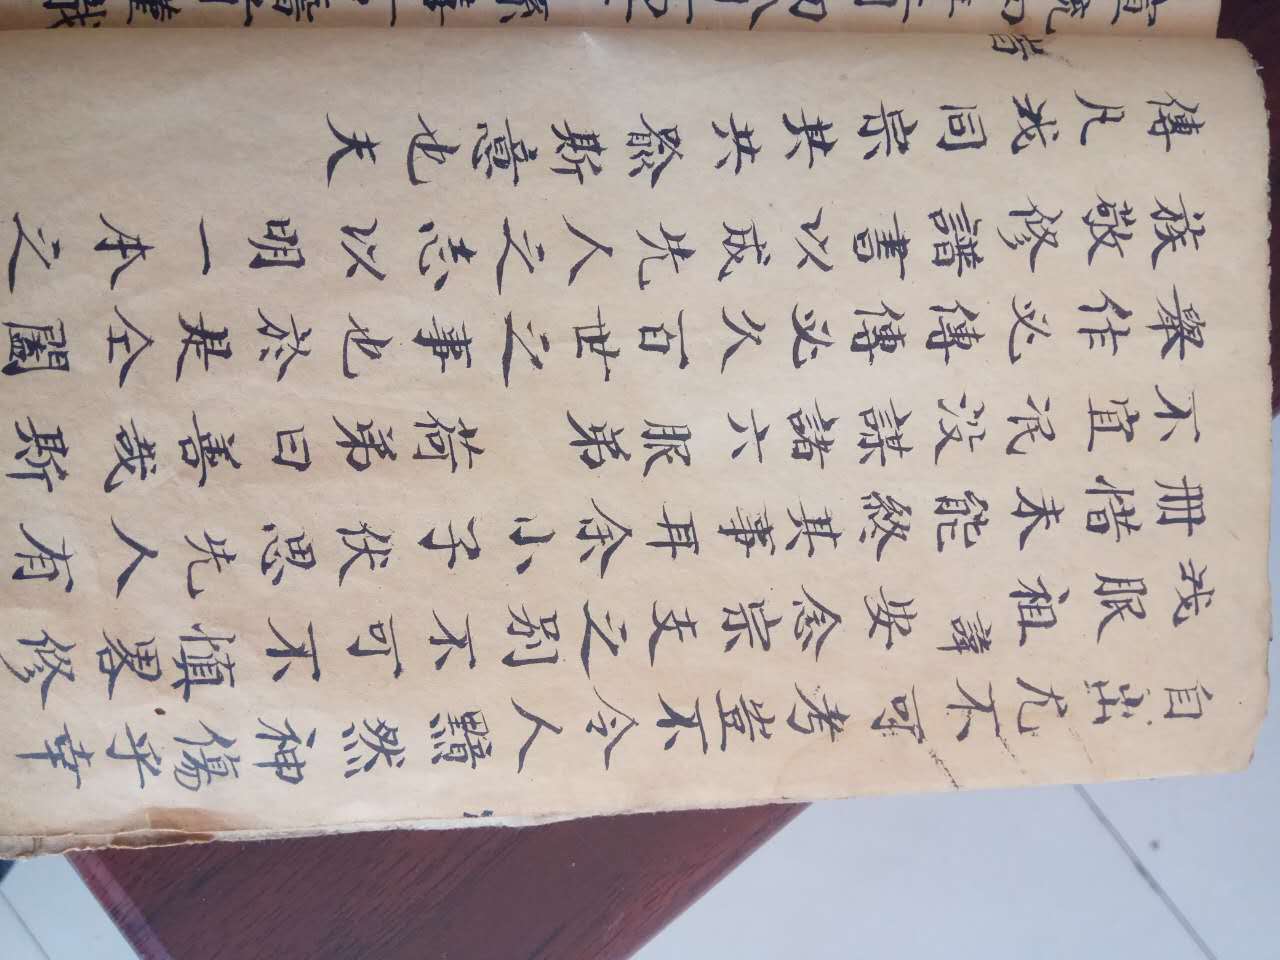 自出尤不可考豈不令人黯然神傷乎幸
我服祖諱安念宗支之別不可不慎畧修
冊惜未能終其事耳余小子伏思先人有
不宜泯没謀諸六服弟 荷弟曰善哉斯
舉作必傳傳必久百世之事也於是仝闔
族敬修譜書以成先人之志以明一本之
傳凡我同宗其共發斯意也夫